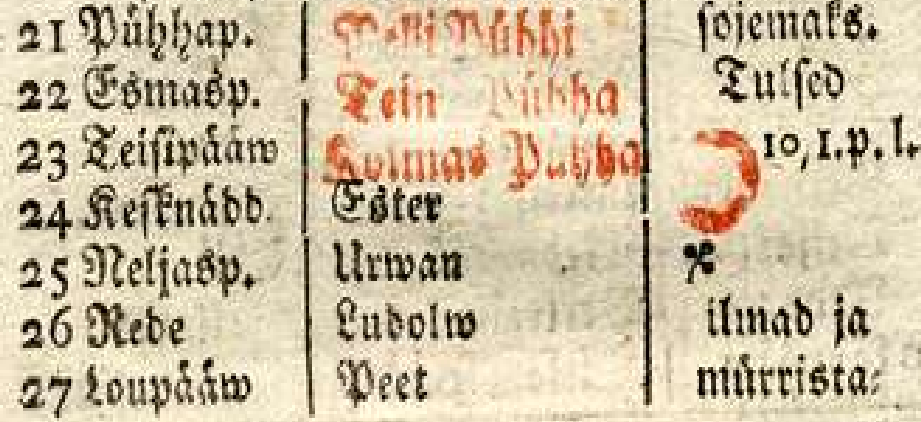 21 Pühhap. Nelli Pühhi sojemaks.
22 Esmasp. Tein Pühha Tulsed
23 Teisipääw Kolmas Pühha 10, 1. p. l.
24 Kesknädd. Ester
25 Neljasp. Urwan
26 Rede Ludolw ilmad ja
27 Loupääw Peet mürrista: